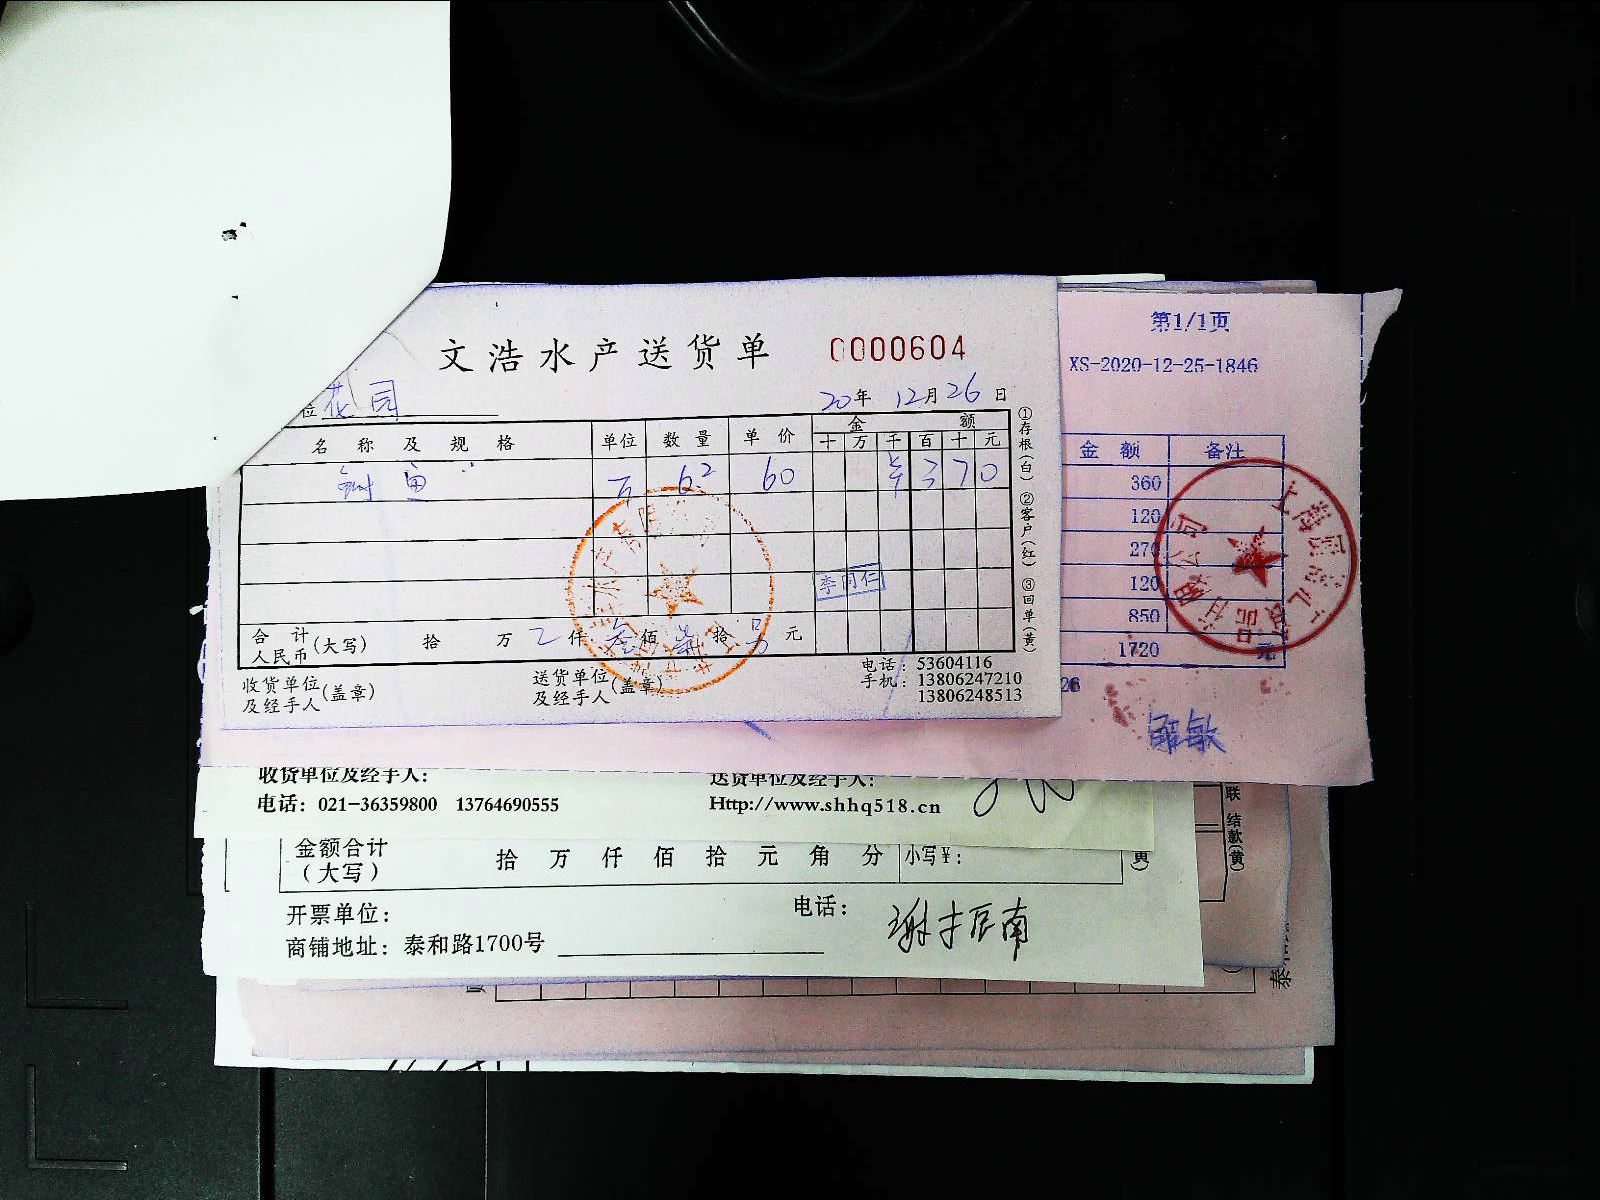 文浩水产送货单 0000604
位 花园 20年 12月26日
名称及规格 单位 数量 单价 金额
十 万 千 百 十 元
鱼 6² 60 3 7 0
李同仁
合计人民币(大写) 拾 万 仟 佰 拾 元
收货单位及经手人(盖章) 送货单位及经手人(盖章)
电话：53604116
手机：13806247210
13806248513
①存根(白) ②客户(红) ③回单(黄)
第1/1页
XS-2020-12-25-1846
金额 备注
360
120
270
120
850
1720 元
26
邹敏
收货单位及经手人： 送货单位及经手人：
电话：021-36359800 13764690555 Http://www.shhq518.cn
联 结款(黄)
金额合计(大写) 拾 万 仟 佰 拾 元 角 分 小写¥：
黄)
开票单位： 电话：
商铺地址：泰和路1700号